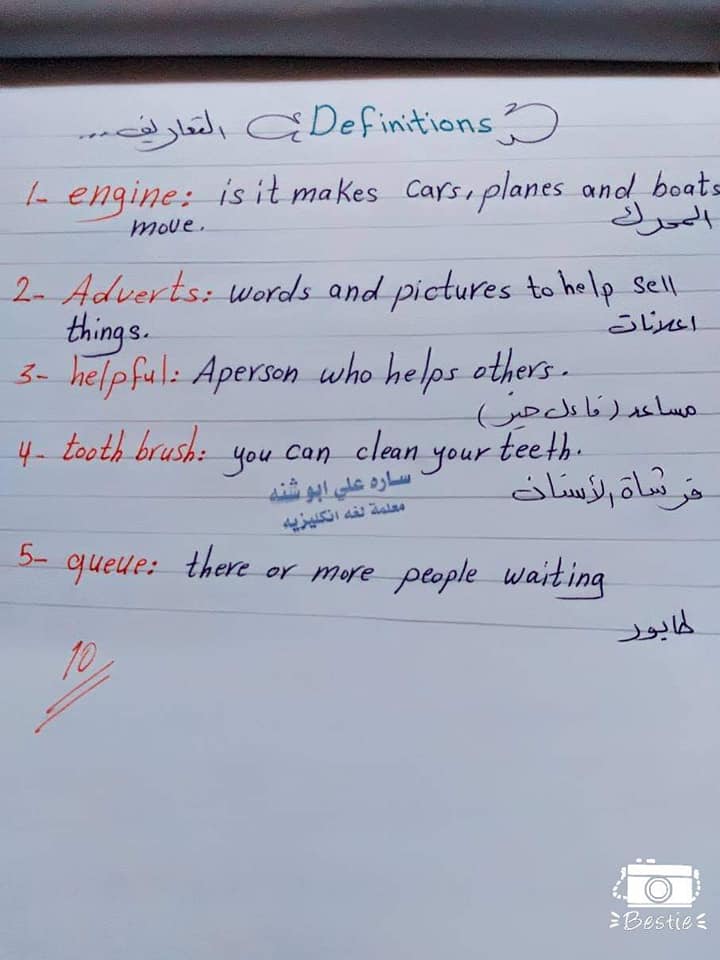 Definitions التعاريف...
1- engine: is it makes cars, planes and boats
move. المحرك
2- Adverts: words and pictures to help sell
things. اعلانات
3- helpful: Aperson who helps others.
مساعد (فاعل خير)
4- tooth brush: you can clean your teeth.
فرشاة الأسنان
ساره علي ابو شنه
معلمة لغه انكليزيه
5- queue: there or more people waiting
طابور
10
Bestie